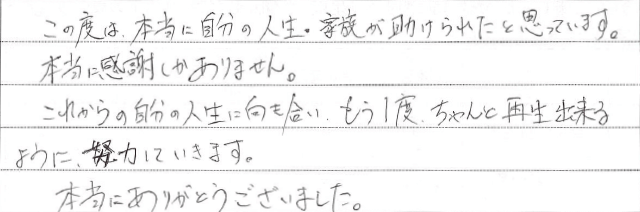 この度は、本当に自分の人生・家族が助けられたと思っています。
本当に感謝しかありません。
これからの自分の人生に向き合い、もう1度、ちゃんと再生出来る
ように、努力していきます。
本当にありがとうございました。